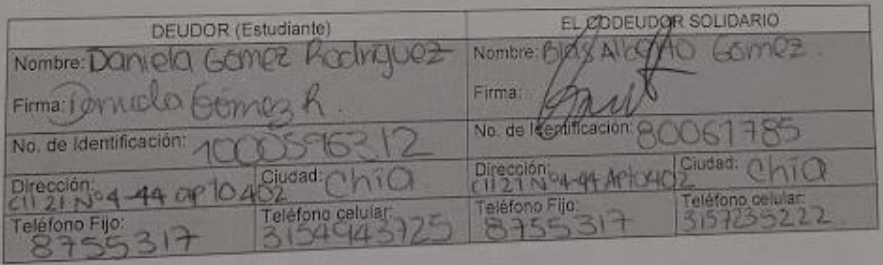 DEUDOR (Estudiante) EL CODEUDOR SOLIDARIO
Nombre: Daniela Gómez Rodríguez Nombre: Blas Alberto Gómez.
Firma: Daniela Gómez R. Firma:
No. de Identificación: 1000596312 No. de Identificación: 80061785
Dirección: Cll 21 Nº 4-44 apto 402 Ciudad: Chía Dirección: Cll 21 Nº 4-44 Apto 402 Ciudad: Chía
Teléfono Fijo: 8755317 Teléfono celular: 3154943725 Teléfono Fijo: 8755317 Teléfono celular: 3157235222